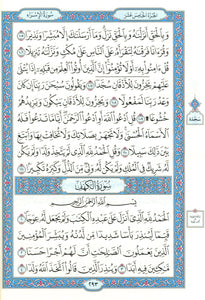 الجزء الخامس عشر
سورة الإسراء
وَبِالْحَقِّ أَنزَلْنَاهُ وَبِالْحَقِّ نَزَلَ وَمَا أَرْسَلْنَاكَ إِلَّا مُبَشِّرًا وَنَذِيرًا ١٠٥
وَقُرْآنًا فَرَقْنَاهُ لِتَقْرَأَهُ عَلَى النَّاسِ عَلَىٰ مُكْثٍ وَنَزَّلْنَاهُ تَنزِيلًا ١٠٦
قُلْ آمِنُوا بِهِ أَوْ لَا تُؤْمِنُوا إِنَّ الَّذِينَ أُوتُوا الْعِلْمَ مِن قَبْلِهِ إِذَا يُتْلَىٰ
عَلَيْهِمْ يَخِرُّونَ لِلْأَذْقَانِ سُجَّدًا ١٠٧ وَيَقُولُونَ سُبْحَانَ رَبِّنَا إِن كَانَ
وَعْدُ رَبِّنَا لَمَفْعُولًا ١٠٨ وَيَخِرُّونَ لِلْأَذْقَانِ يَبْكُونَ وَيَزِيدُهُمْ
خُشُوعًا ١٠٩ قُلِ ادْعُوا اللَّهَ أَوِ ادْعُوا الرَّحْمَٰنَ أَيًّا مَّا تَدْعُوا فَلَهُ
الْأَسْمَاءُ الْحُسْنَىٰ وَلَا تَجْهَرْ بِصَلَاتِكَ وَلَا تُخَافِتْ بِهَا وَابْتَغِ
بَيْنَ ذَٰلِكَ سَبِيلًا ١١٠ وَقُلِ الْحَمْدُ لِلَّهِ الَّذِي لَمْ يَتَّخِذْ وَلَدًا وَلَمْ يَكُن
لَّهُ شَرِيكٌ فِي الْمُلْكِ وَلَمْ يَكُن لَّهُ وَلِيٌّ مِّنَ الذُّلِّ وَكَبِّرْهُ تَكْبِيرًا ١١١
سورة الكهف
بِسْمِ اللَّهِ الرَّحْمَٰنِ الرَّحِيمِ
الْحَمْدُ لِلَّهِ الَّذِي أَنزَلَ عَلَىٰ عَبْدِهِ الْكِتَابَ وَلَمْ يَجْعَل لَّهُ عِوَجًا ١
قَيِّمًا لِّيُنذِرَ بَأْسًا شَدِيدًا مِّن لَّدُنْهُ وَيُبَشِّرَ الْمُؤْمِنِينَ
الَّذِينَ يَعْمَلُونَ الصَّالِحَاتِ أَنَّ لَهُمْ أَجْرًا حَسَنًا ٢
مَّاكِثِينَ فِيهِ أَبَدًا ٣ وَيُنذِرَ الَّذِينَ قَالُوا اتَّخَذَ اللَّهُ وَلَدًا ٤
٢٩٣
سجدة